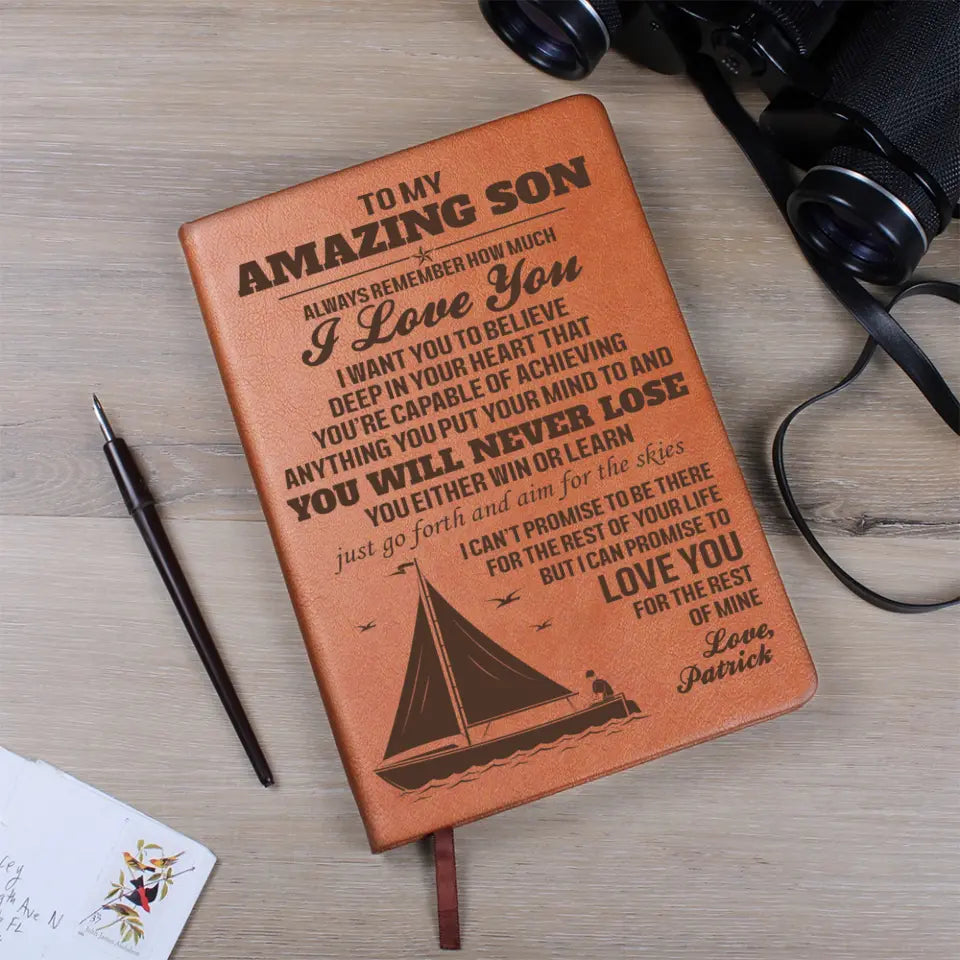 TO MY
AMAZING SON
ALWAYS REMEMBER HOW MUCH
I Love You
I WANT YOU TO BELIEVE
DEEP IN YOUR HEART THAT
YOU'RE CAPABLE OF ACHIEVING
ANYTHING YOU PUT YOUR MIND TO AND
YOU WILL NEVER LOSE
YOU EITHER WIN OR LEARN
just go forth and aim for the skies
I CAN'T PROMISE TO BE THERE
FOR THE REST OF YOUR LIFE
BUT I CAN PROMISE TO
LOVE YOU
FOR THE REST
OF MINE
Love,
Patrick
Ave N
FL